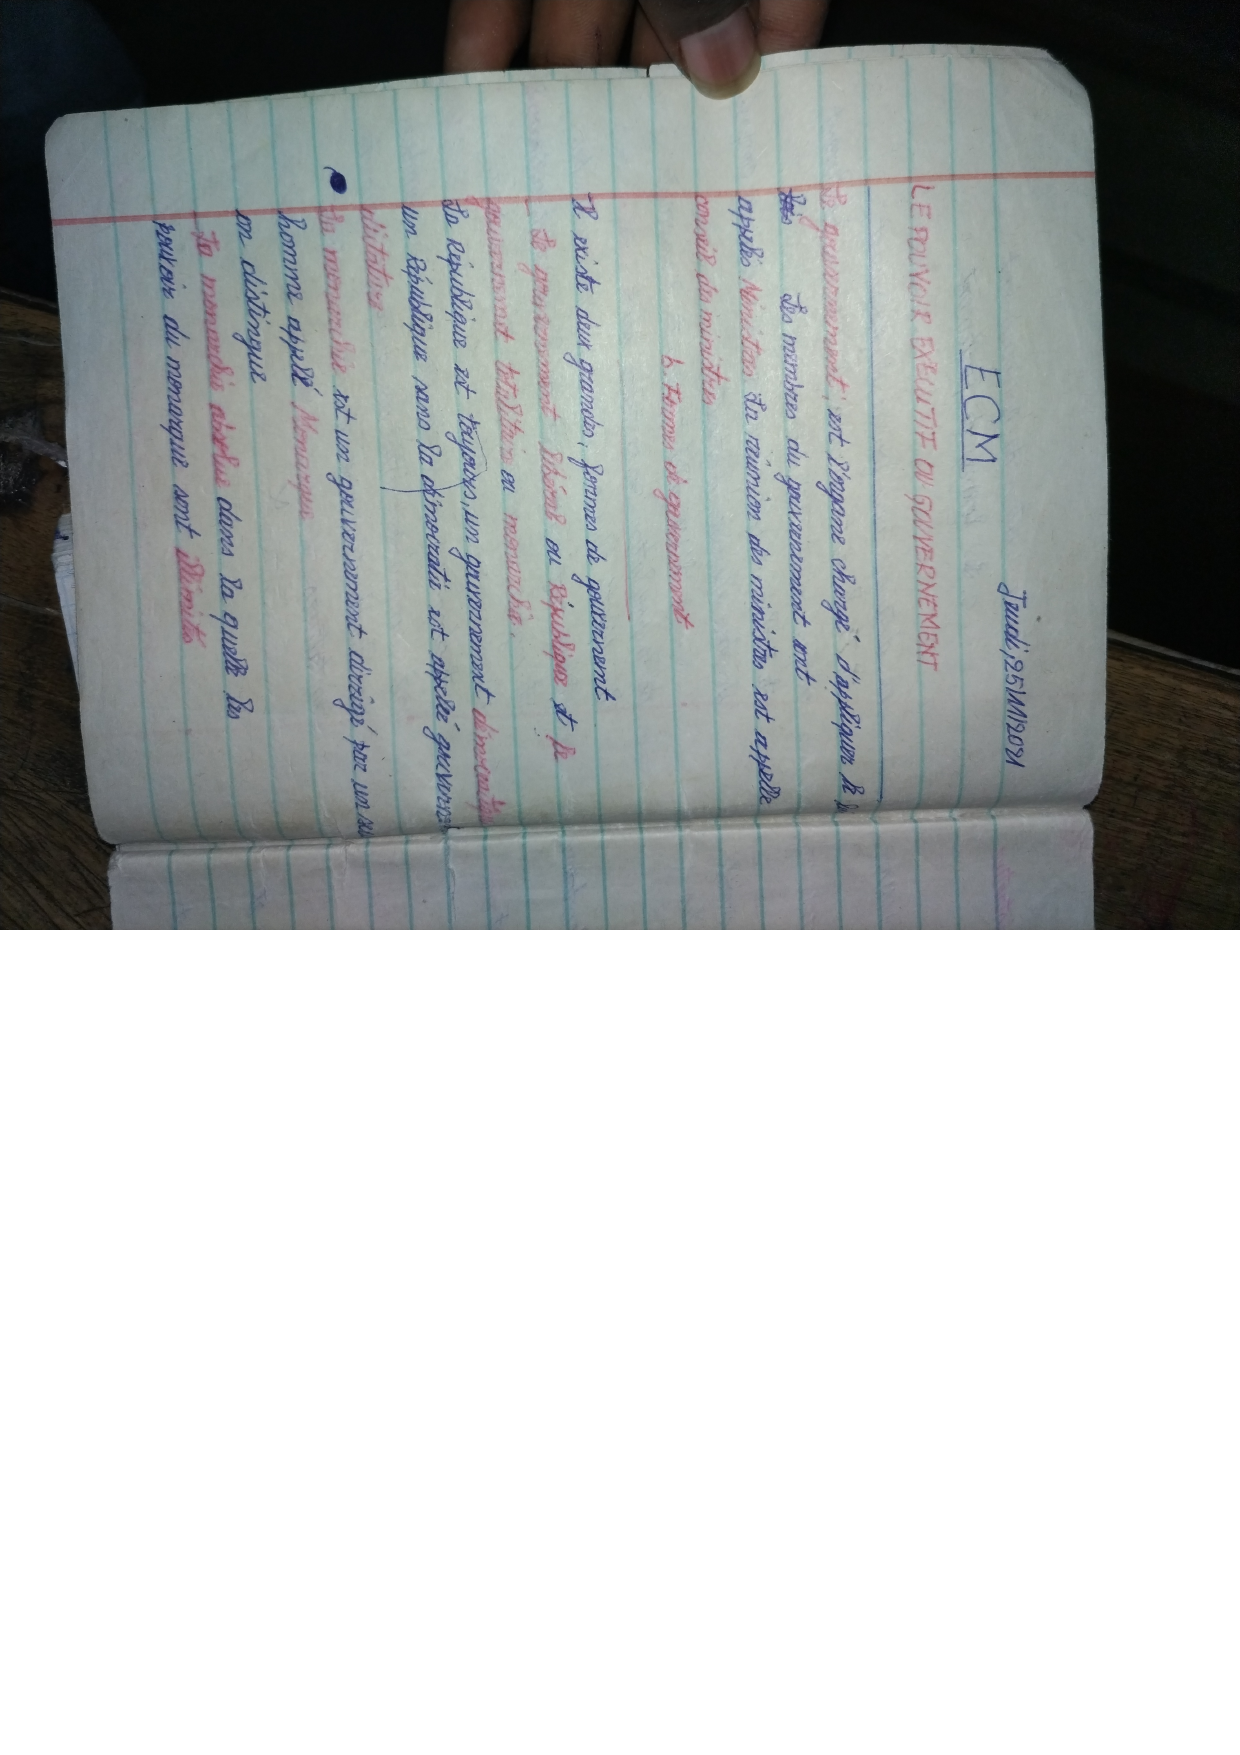 Jeudi, 25/11/2021
ECM
LE POUVOIR EXECUTIF OU GUVERNEMENT
Le gouvernement, est l'organe chargé d'appliquer le
Les membres du gouvernement sont
appelés Ministres La réunion des ministres est appelle
conseil des ministres
b. Formes de gouvernement
Il existe deux grandes, formes de gouvernement
Le gouvernement libéral ou République et le
gouvernement totalitaire ou monarchie.
La République est toujours, un gouvernement démocratique
un République sans la démocratie est appelé gouverne
dictature
La monarchie est un gouvernement dirigé par un seu
homme appelé Monarque
on distingue
La monarchie absolue dans la quelle les
pouvoir du monarque sont illimités